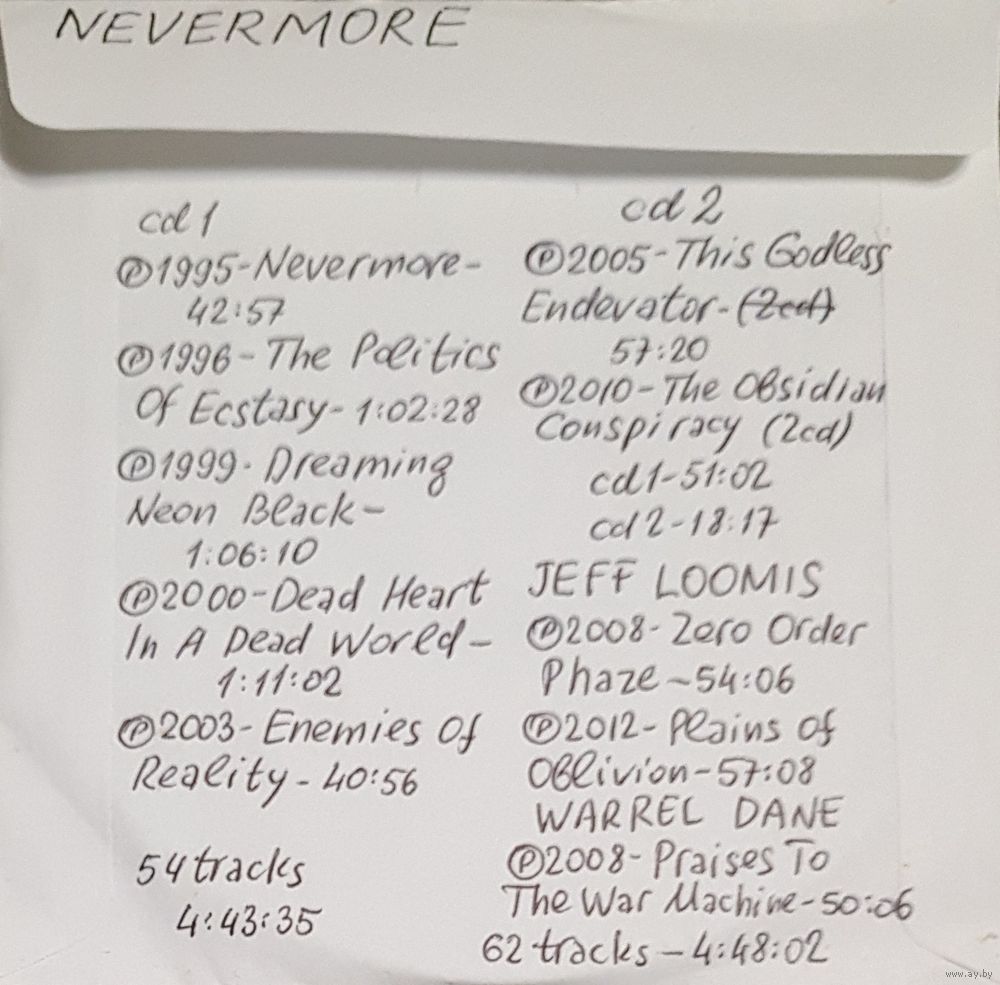 NEVERMORE
cd 1
℗1995-Nevermore-
42:57
℗1996-The Politics
Of Ecstasy-1:02:28
℗1999-Dreaming
Neon Black-
1:06:10
℗2000-Dead Heart
In A Dead World-
1:11:02
℗2003-Enemies Of
Reality-40:56
54 tracks
4:43:35
cd 2
℗2005-This Godless
Endevator-(2cd)
57:20
℗2010-The Obsidian
Conspiracy (2cd)
cd1-51:02
cd2-18:17
JEFF LOOMIS
℗2008-Zero Order
Phaze-54:06
℗2012-Plains Of
Oblivion-57:08
WARREL DANE
℗2008-Praises To
The War Machine-50:06
62 tracks-4:48:02
www.ay.by